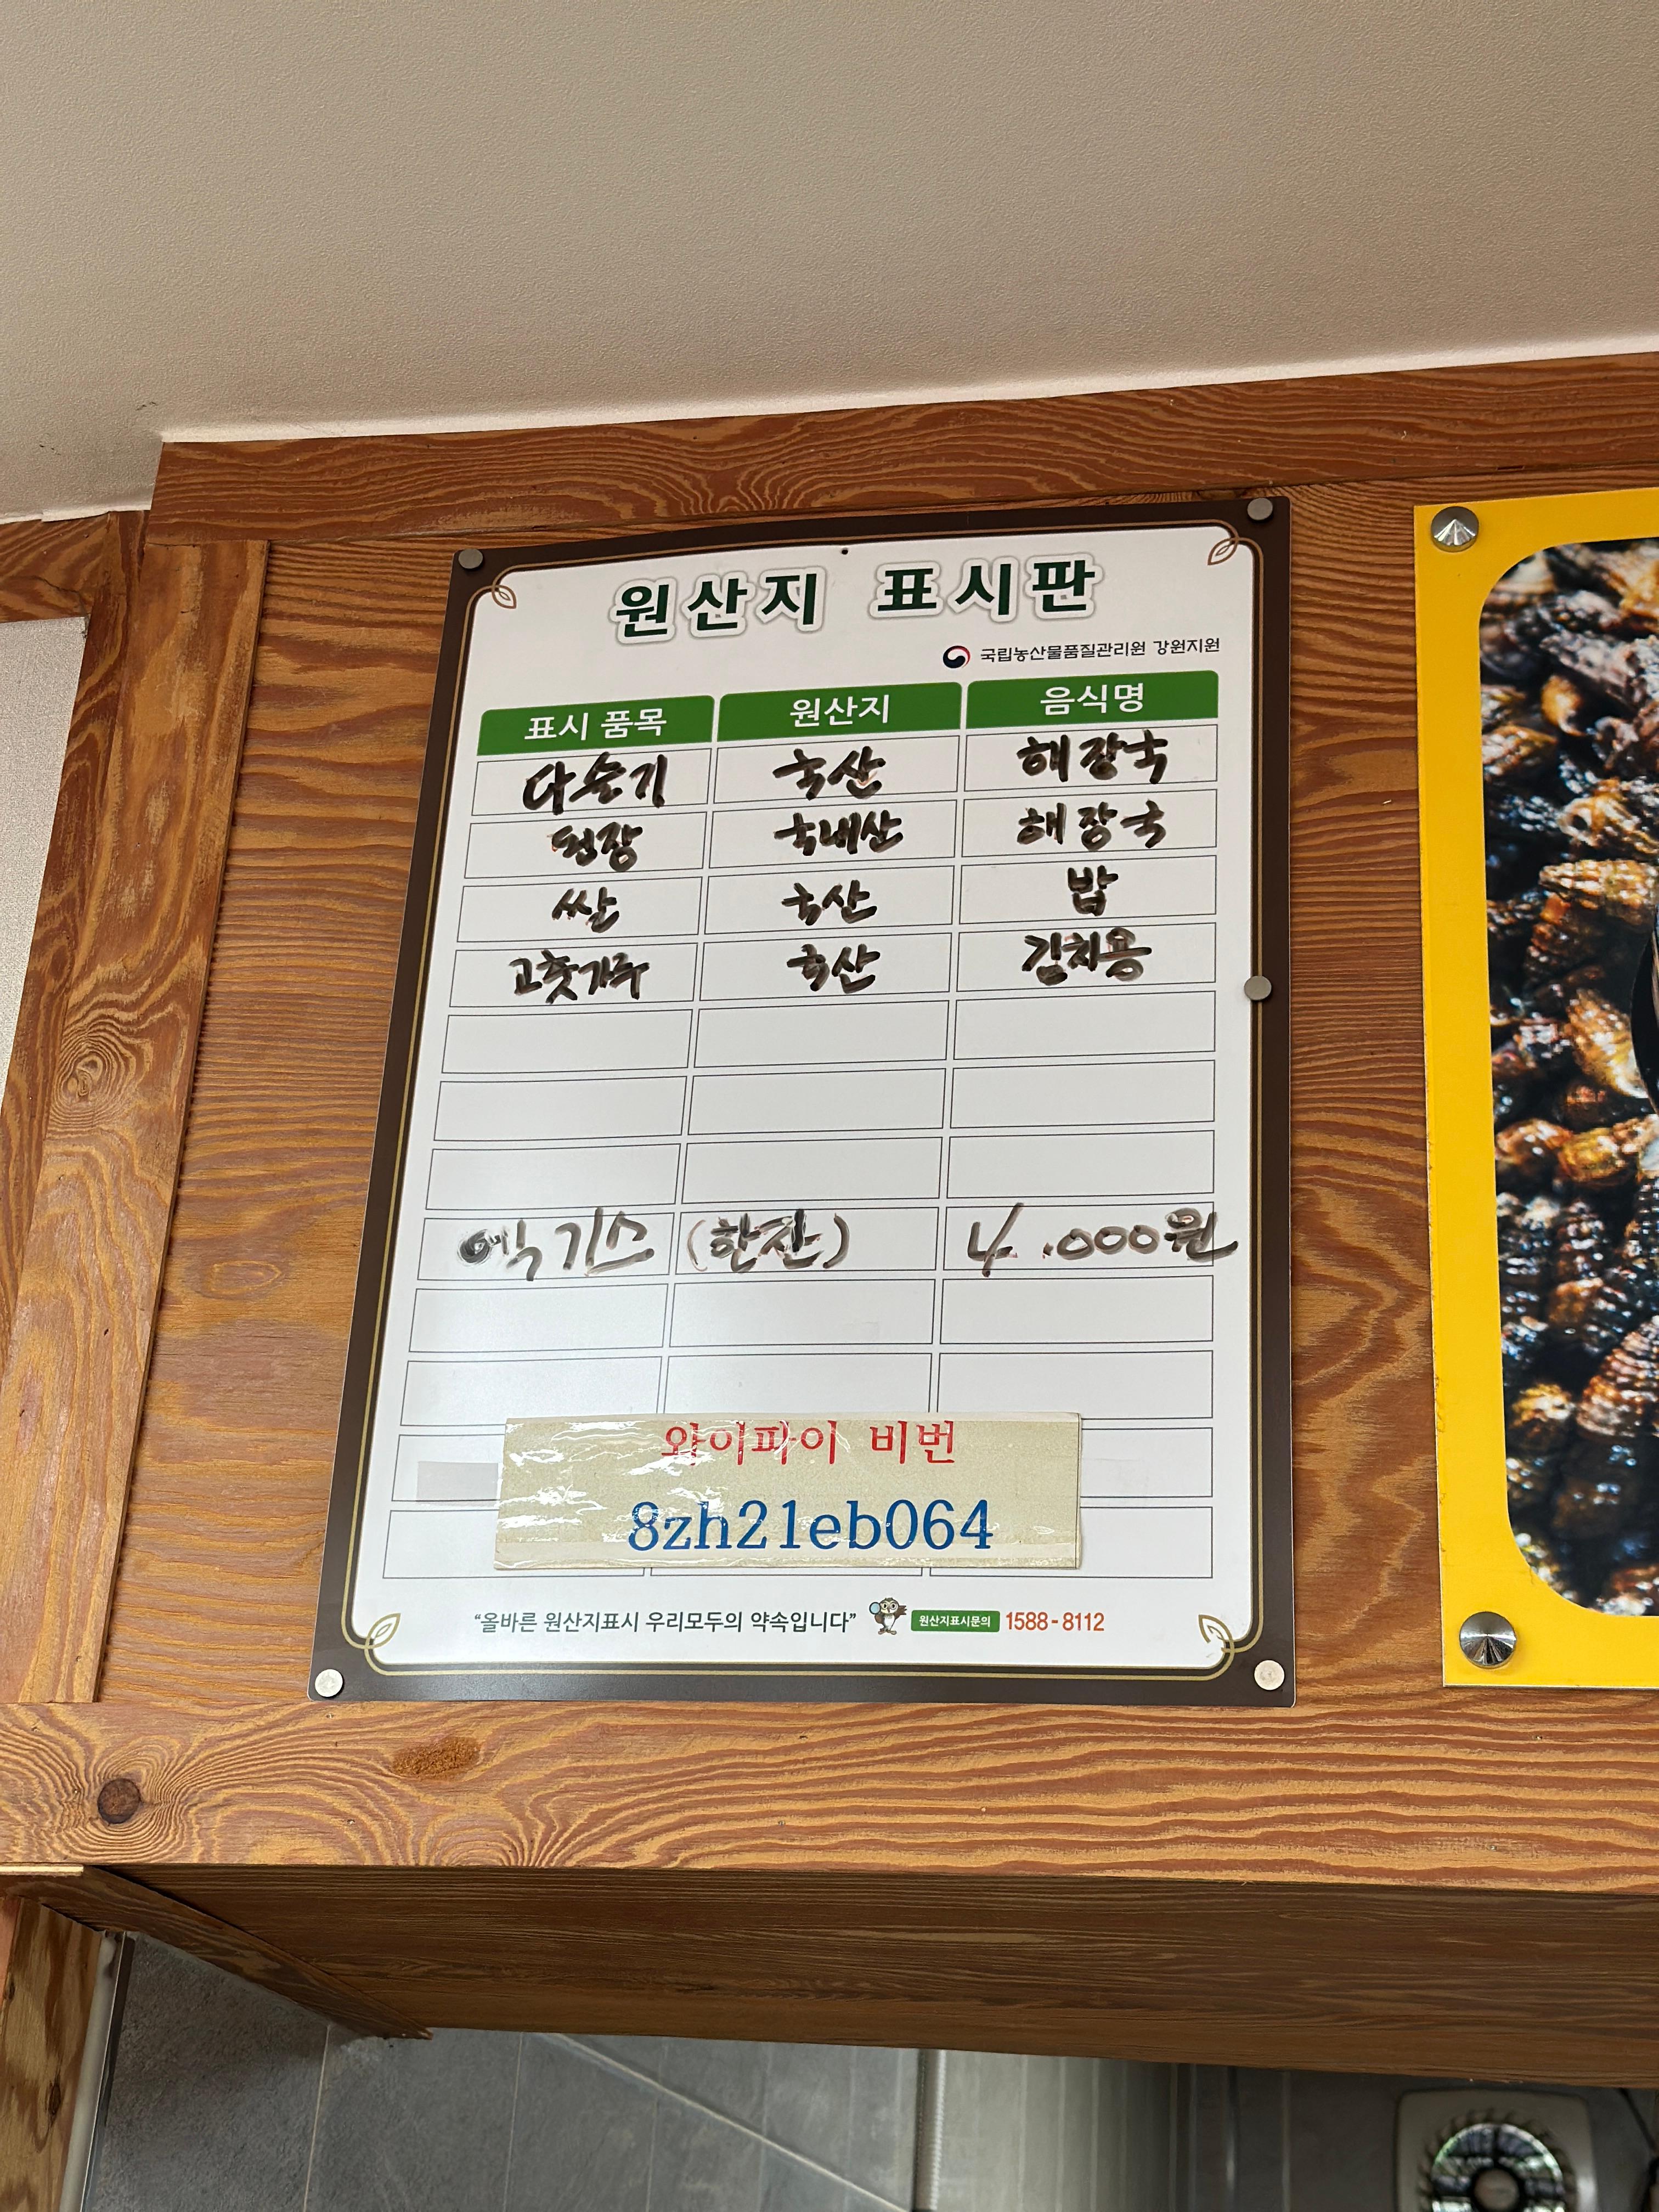 원산지 표시판
국립농산물품질관리원 강원지원
표시 품목 원산지 음식명
다슬기 국산 해장국
된장 국내산 해장국
쌀 국산 밥
고춧가루 국산 김치용
엑기스 (한잔) 4.000원
와이파이 비번
8zh21eb064
“올바른 원산지표시 우리모두의 약속입니다” 원산지표시문의 1588-8112